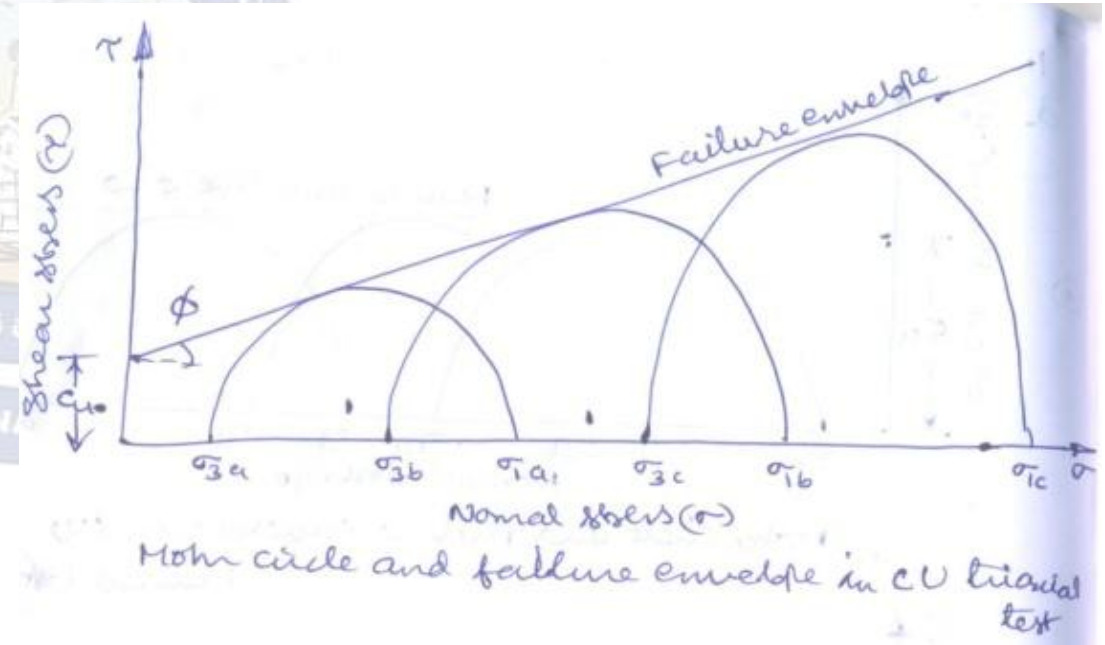 τ
Shear stress (τ)
Failure envelope
ϕ
Cu
σ3a σ3b σ1a σ3c σ1b σ1c σ
Nomal stress (σ)
Mohr circle and failure envelope in CU triaxial
test